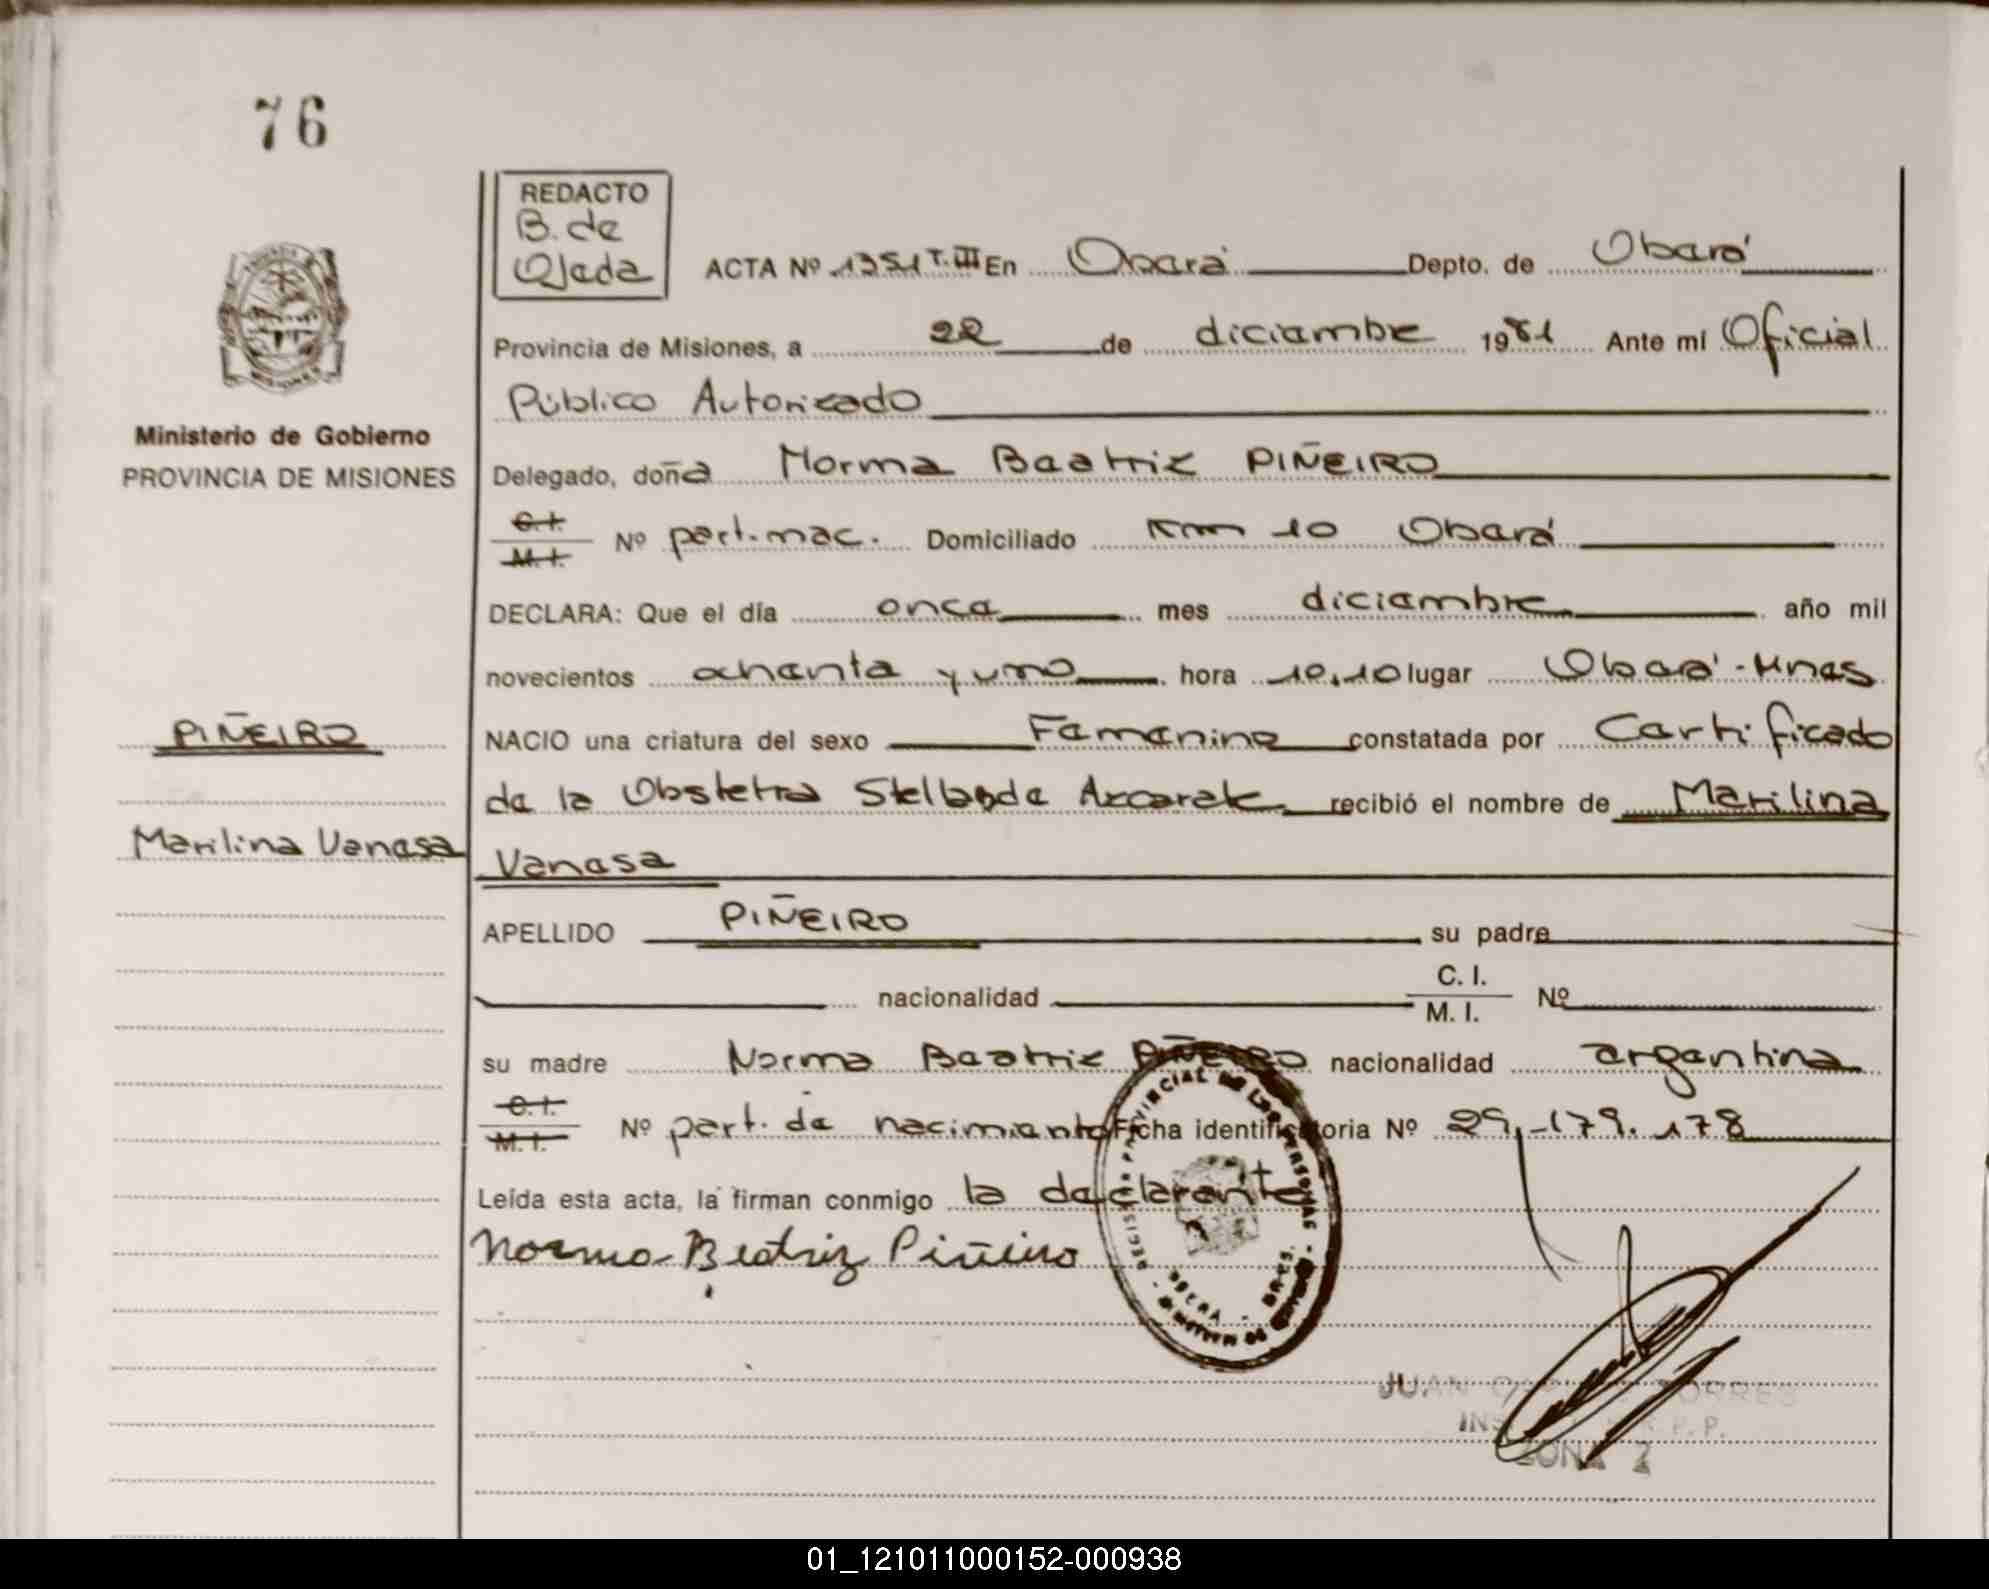 76
REDACTO
B. de
Ojeda
ACTA Nº 1351 T. III En Oberá Depto. de Oberá
Provincia de Misiones, a 22 de diciembre 1981 Ante mí Oficial
Público Autorizado
Ministerio de Gobierno
PROVINCIA DE MISIONES
Delegado, doña Norma Beatriz PIÑEIRO
C.I.
M.I. Nº part. nac. Domiciliado Km 10 Oberá
DECLARA: Que el día once mes diciembre año mil
novecientos ochenta y uno hora 10,10 lugar Oberá - Mnes
PIÑEIRO
NACIO una criatura del sexo Femenino constatada por Certificado
de la Obstetra Stella de recibió el nombre de Marilina
Marilina Vanesa
Vanesa
APELLIDO PIÑEIRO su padre
nacionalidad C. I.
M. I. Nº
su madre Norma Beatriz PIÑEIRO nacionalidad argentina
C.I.
M.I. Nº part. de nacimiento Ficha identificatoria Nº 29.179.178
Leída esta acta, la firman conmigo la declarante
Norma Beatriz Piñeiro
REGISTRO PROVINCIAL DE LAS PERSONAS
OBERA
JUAN TORRES
ZONA 2
01_121011000152-000938